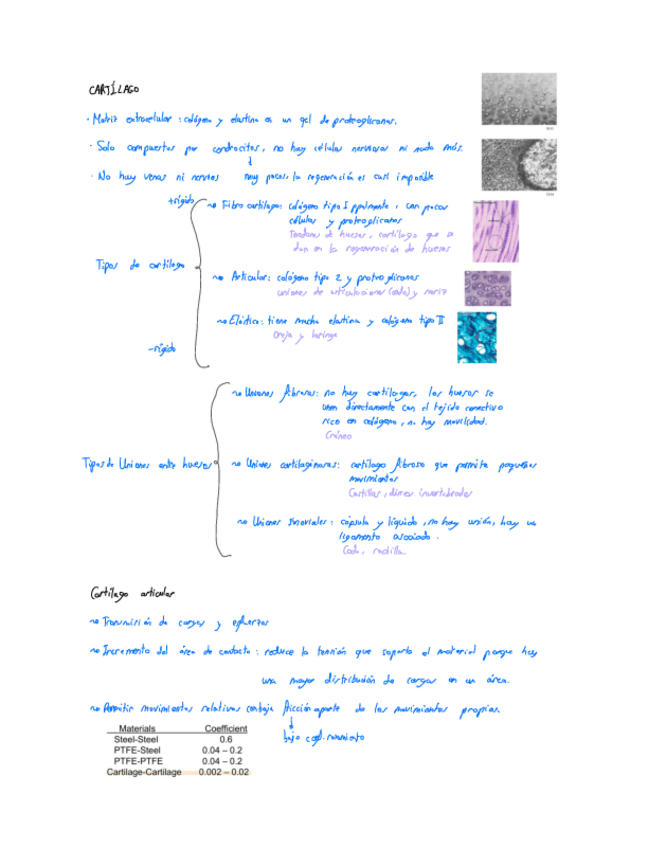 CARTÍLAGO
· Matriz extracelular: colágeno y elastina en un gel de proteoglicanos.
· Solo compuestos por condrocitos, no hay células nerviosas ni nada más.
↓
· No hay venas ni nervios muy pocos, la regeneración es casi imposible
+rígido
Fibrocartílago: colágeno tipo I ppalmente, con pocas
células y proteoglicanos
Tendones de huesos, cartílago que se
dan en la regeneración de huesos
Tipos de cartílago
Articular: colágeno tipo 2 y proteoglicanos
uniones de articulaciones (codo) y nariz
Elástico: tiene mucha elastina y colágeno tipo II
Oreja y laringe
-rígido
Uniones fibrosas: no hay cartílagos, los huesos se
unen directamente con el tejido conectivo
rico en colágeno, no hay movilidad.
Cráneo
Tipos de Uniones entre huesos
Uniones cartilaginosas: cartílago fibroso que permite pequeños
movimientos
Costillas, discos invertebrales
Uniones sinoviales: cápsula y líquido, no hay unión, hay un
ligamento asociado.
Codo, rodilla.
Cartílago articular
Transmisión de cargas y esfuerzos
Incremento del área de contacto: reduce la tensión que soporta el material porque hay
una mayor distribución de cargas en un área.
Permitir movimientos relativos con baja fricción aparte de los movimientos propios.
↓
bajo coef. rozamiento
Materials Coefficient
Steel-Steel 0.6
PTFE-Steel 0.04 – 0.2
PTFE-PTFE 0.04 – 0.2
Cartilage-Cartilage 0.002 – 0.02